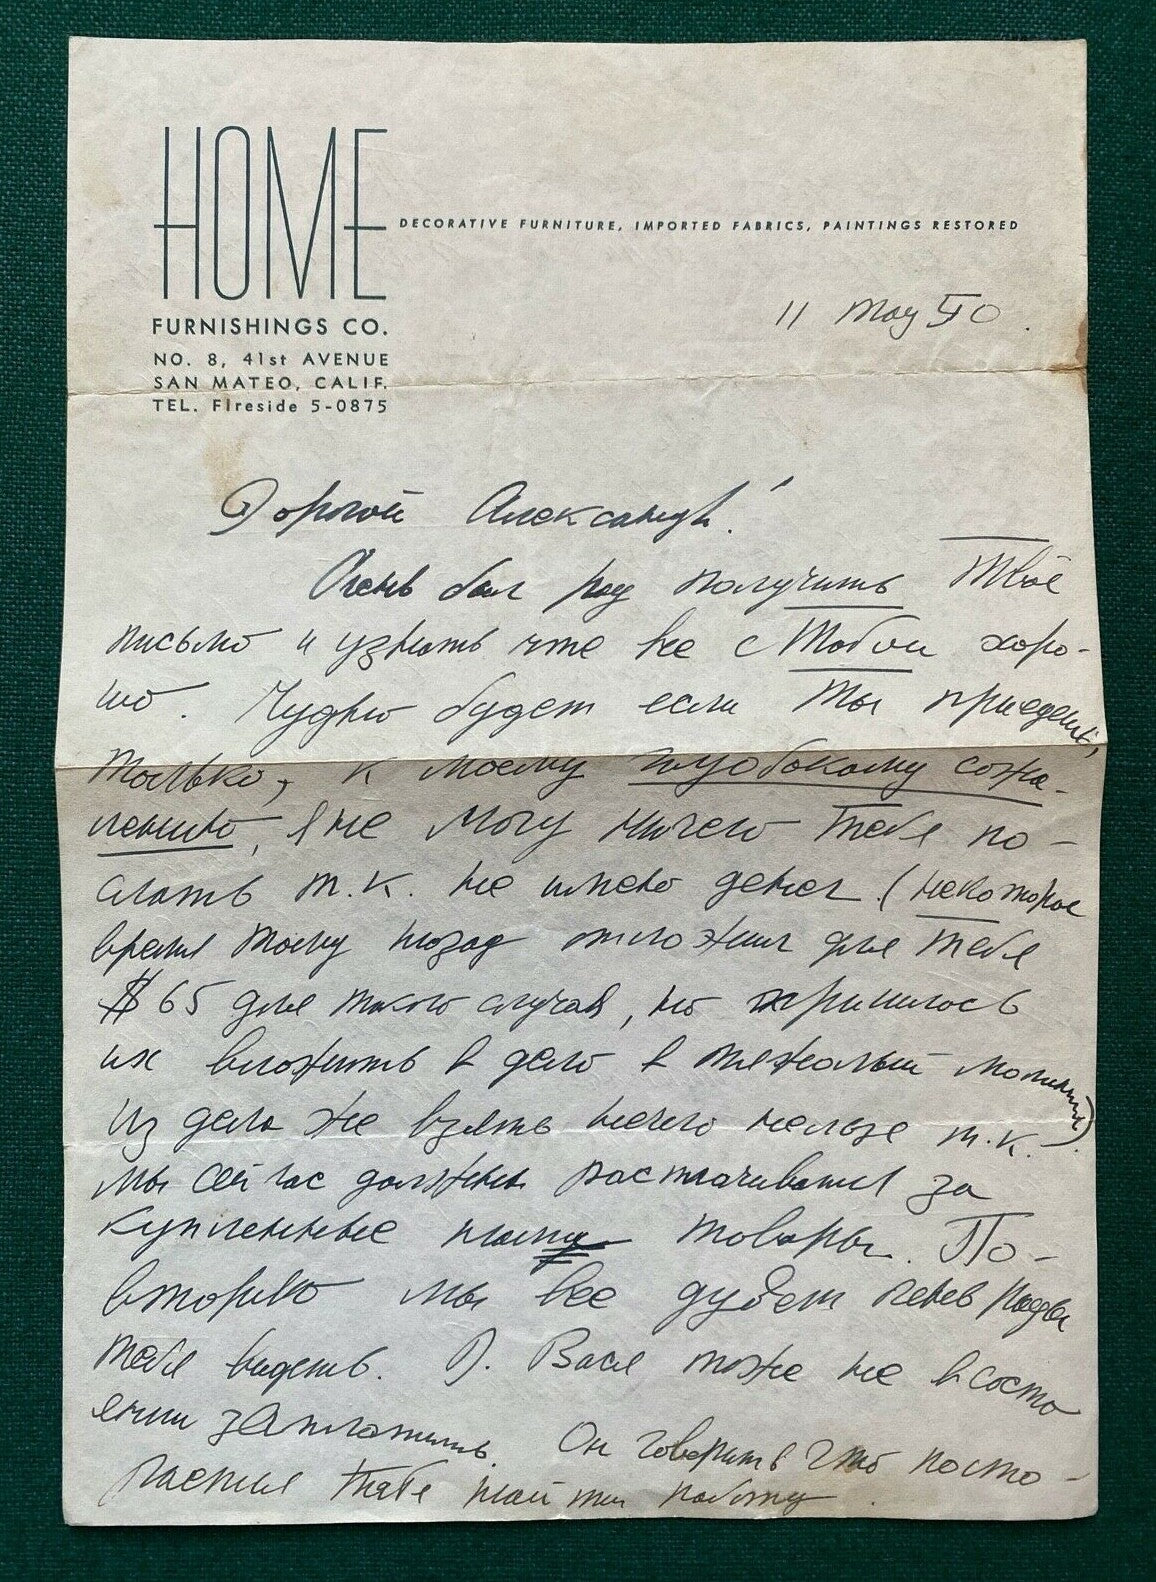 HOME
DECORATIVE FURNITURE, IMPORTED FABRICS, PAINTINGS RESTORED
FURNISHINGS CO.
NO. 8, 41st AVENUE
SAN MATEO, CALIF.
TEL. FIreside 5-0875
11 May 50.
Дорогой Александр!
Очень был рад получить Твое
письмо и узнать что все с Тобой хоро-
шо. Чудно будет если Ты приедешь,
только, к моему глубокому сожа-
лению, я не могу ничего Тебе по-
слать т.к. не имею денег. (некоторое
время тому назад отложил для Тебя
$65 для такого случая, но пришлось
их вложить в дело в тяжелый момент)
Из дела же взять нечего нельзя т.к.
мы сейчас должны расплачиваться за
купленные нами товары. По-
вторяю мы все будем рады
тебя видеть. Д. Вася тоже не в состо
янии заплатить. Он говорить что поста-
рается тебе найти работу.